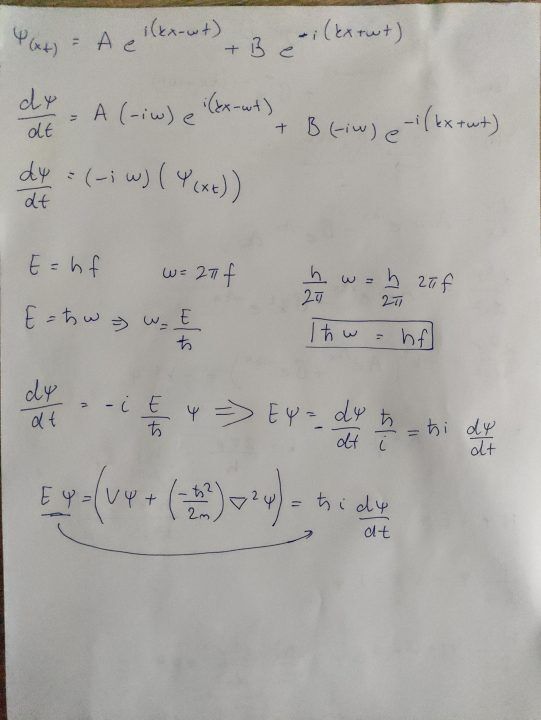 Ψ(xt) = A e^{i(kx-wt)} + B e^{-i(kx+wt)}
dΨ/dt = A (-iw) e^{i(kx-wt)} + B (-iw) e^{-i(kx+wt)}
dΨ/dt = (-iw) (Ψ(xt))
E = hf w = 2πf h/2π w = h/2π 2πf
E = ħw ⇒ w = E/ħ ħw = hf
dΨ/dt = -i E/ħ Ψ ⇒ EΨ = - dΨ/dt ħ/i = ħi dΨ/dt
EΨ = (VΨ + (-ħ²/2m) ∇²Ψ) = ħi dΨ/dt